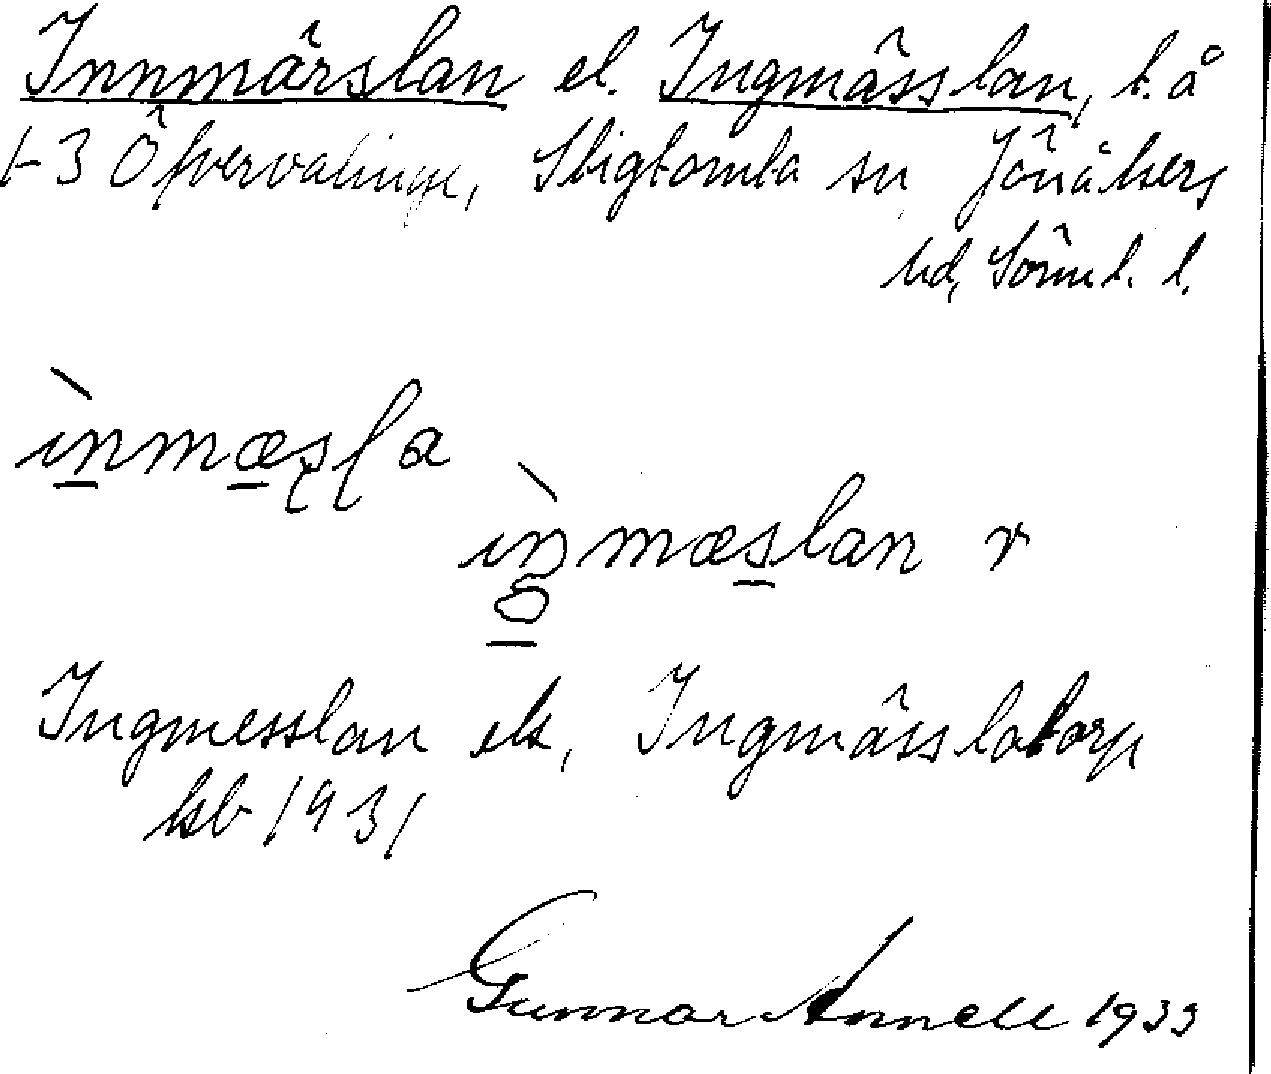 Innmärslan el. Ingmässlan, t. å
1-3 Öfvervalinge, Stigtomta sn Jönåkers
hd, Sörml. l.
ìnmæsla
ìŋmæslan r
Ingmesslan ek, Ingmässlatorp
ksb 1931
Gunnar Annell 1933